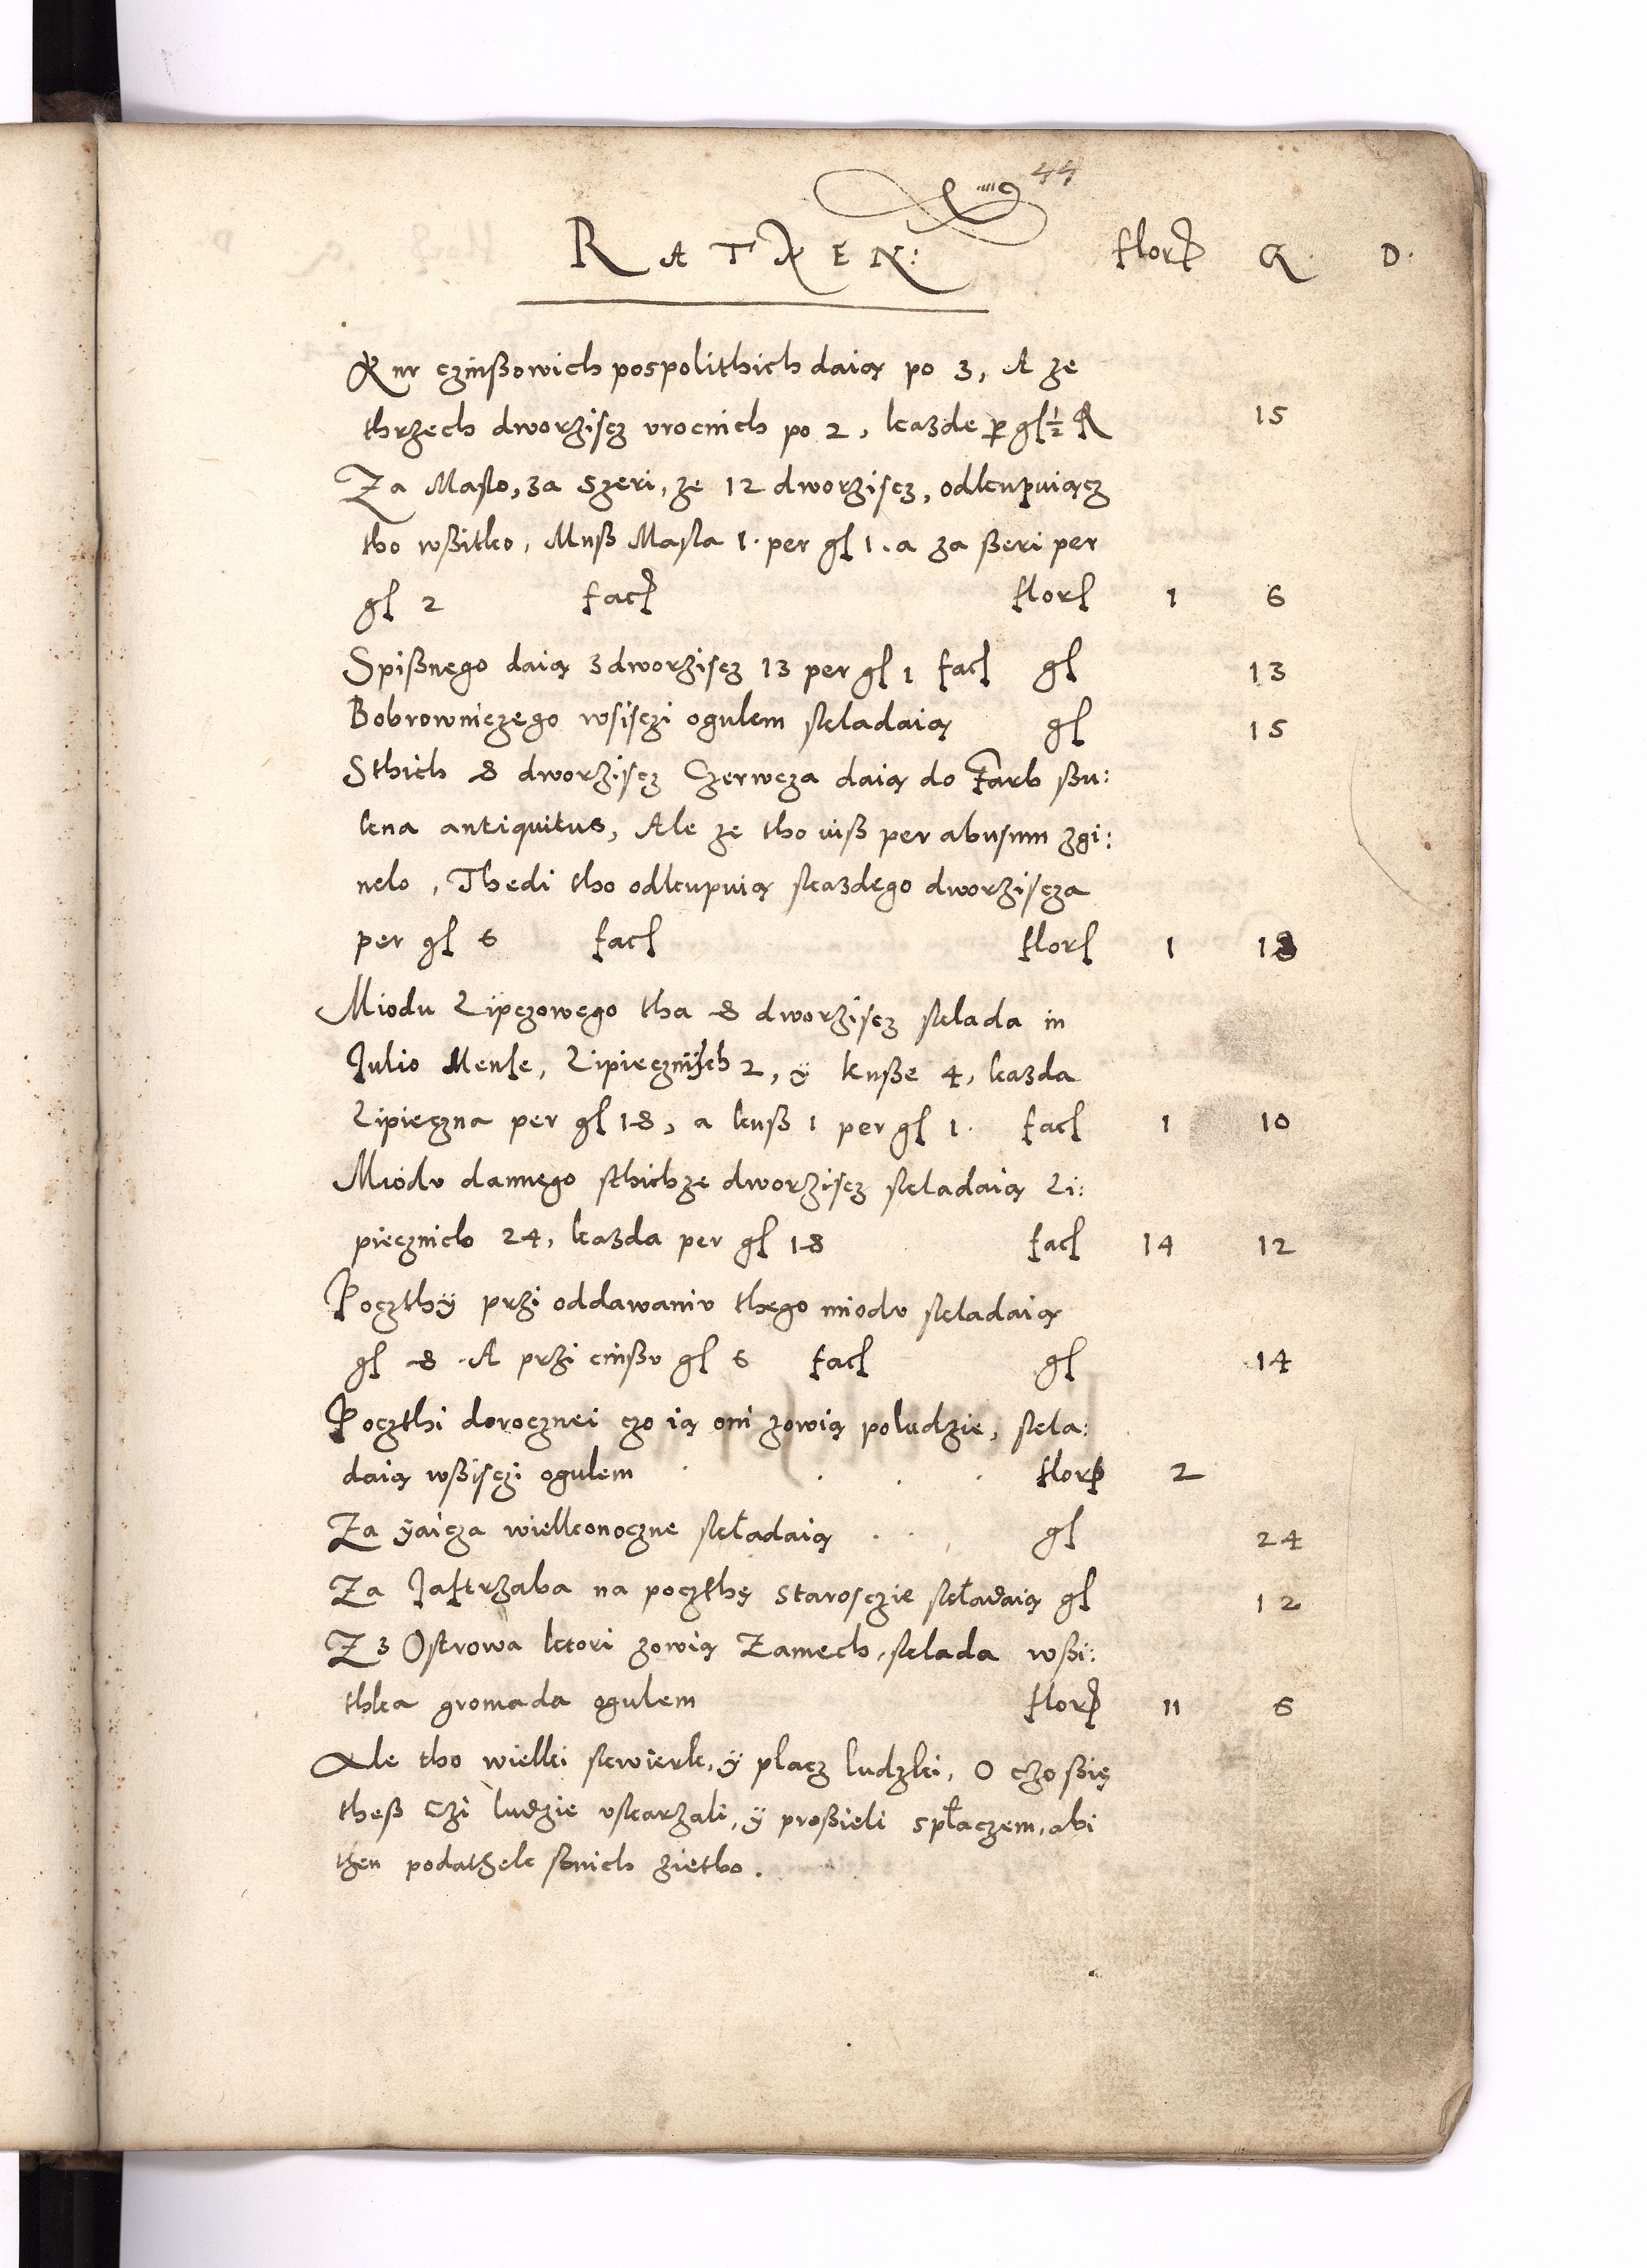 44
RATNEN: flor G D.
Kur czinßowich pospolithich daią po 3, A ze
thrzech dworziscz vrocnich po 2, kazde per gl ½ facit 15
Za Maslo, za Szeri, ze 12 dworziscz, odkupuiącz
tho wßitko, Muß Masla 1. per gl 1. a za ßeri per
gl 2 facit flor 1 6
Spißnego daią z dworziscz 13 per gl 1 facit gl 13
Bobrowniczego wsisczi ogulem składaią gl 15
Sthich 8 dworziscz Czerwcza daią do Farb ßu:
kna antiquitus, Ale ze tho iuß per abusum zgi:
nelo, Thedi tho odkupuią skazdego dworzißcza
per gl 6 facit flor 1 18
Miodu Lipczowego tha 8 dworzißcz sklada in
Julio Mense, Lipiecznich 2, ÿ kuße 4, kazda
Lipieczna per gl 18, a kuß 1 per gl 1. facit 1 10
Miodv dannego sthichze dworzißcz skladaią Li:
piecznich 24, kazda per gl 18 facit 14 12
Poczthÿ przi oddawaniv thego miodv skladaią
gl 8. A przi cinßv gl 6 facit gl 14
Poczthi dorocznei czo ią oni zowią poludzie, skla:
daią wßisczi ogulem flor 2
Za ÿaicza wielkonoczne składaią gl 24
Za Jastrzaba na poczthę Starosczie składaią gl 12
Z3 Ostrowa ktori zowią Zamech, sklada wßi:
thka gromada ogulem flor 11 6
Ale tho wielki skwierk, ÿ placz ludzki, O czo ßię
theß Czi ludzie vskarzali, ÿ proßieli spłaczem, abi
then podathek snich zietho.